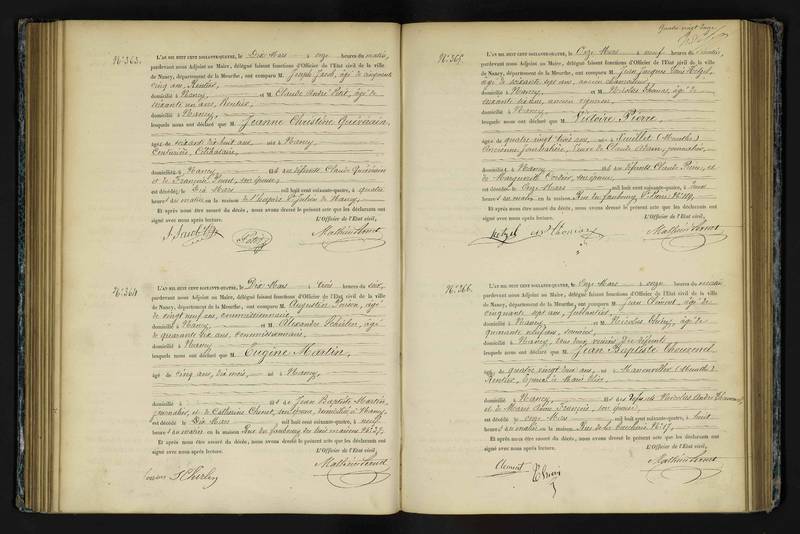 N.° 363.
L'AN MIL HUIT CENT SOIXANTE-QUATRE, le Dix Mars à onze heures du matin,
pardevant nous Adjoint au Maire, délégué faisant fonctions d'Officier de l'Etat civil de la ville
de Nancy, département de la Meurthe, ont comparu M. Joseph Jacob, âgé de cinquante
cinq ans, Rentier,
domicilié à Nancy et M. Claude André Petit, âgé de
soixante un ans, Rentier,
domicilié à Nancy
lesquels nous ont déclaré que M. Jeanne Christine Quérinain,
âgée de soixante dix huit ans, née à Nancy
Couturière, Célibataire,
domiciliée à Nancy de défunts Claude
et de Françoise son épouse,
est décédée le Dix Mars mil huit cent soixante-quatre, à quatre
heures du matin en la maison de l'hospice St Julien de Nancy.
Et après nous être assuré du décès, nous avons dressé le présent acte que les déclarants ont
signé avec nous après lecture.
L'Officier de l'Etat civil,
N.° 364
L'AN MIL HUIT CENT SOIXANTE-QUATRE, le Dix Mars à trois heures du soir,
pardevant nous Adjoint au Maire, délégué faisant fonctions d'Officier de l'Etat civil de la ville
de Nancy, département de la Meurthe, ont comparu M. Augustin âgé
de vingt neuf ans, commissionnaire,
domicilié à Nancy et M. Alexandre âgé
de quarante six ans, commissionnaire,
domicilié à Nancy
lesquels nous ont déclaré que M. Eugène Martin,
âgé de cinq ans, dix mois, né à Nancy,
domicilié à de Jean Baptiste Martin,
journalier, et de Catherine son épouse, domiciliés à Nancy
est décédé le Dix Mars mil huit cent soixante-quatre, à neuf
heures du matin en la maison Rue du faubourg des trois maisons N° 37.
Et après nous être assuré du décès, nous avons dressé le présent acte que les déclarants ont
signé avec nous après lecture.
L'Officier de l'Etat civil,
Quatre vingt onze
N.° 365.
L'AN MIL HUIT CENT SOIXANTE-QUATRE, le Onze Mars à neuf heures du matin,
pardevant nous Adjoint au Maire, délégué faisant fonctions d'Officier de l'Etat civil de la ville
de Nancy, département de la Meurthe, ont comparu M. Jean Jacques Louis Hetzel,
âgé de soixante sept ans, ancien
domicilié à Nancy, et M. Nicolas Thomas, âgé de
soixante six ans, ancien vigneron,
domicilié à Nancy
lesquels nous ont déclaré que M. Victoire Pierre,
âgée de quatre vingt trois ans, née à (Meurthe)
ancienne journalière, Veuve de Claude journalier,
domiciliée à Nancy de défunts Claude Pierre, et
de Marguerite son épouse,
est décédée le Onze Mars mil huit cent soixante-quatre, à deux
heures du matin en la maison Rue du faubourg St Pierre N° 119.
Et après nous être assuré du décès, nous avons dressé le présent acte que les déclarants ont
signé avec nous après lecture.
L'Officier de l'Etat civil,
Hetzel
N.° 366.
L'AN MIL HUIT CENT SOIXANTE-QUATRE, le Onze Mars à onze heures du matin
pardevant nous Adjoint au Maire, délégué faisant fonctions d'Officier de l'Etat civil de la ville
de Nancy, département de la Meurthe, ont comparu M. Jean Clément, âgé de
cinquante sept ans,
domicilié à Nancy, et M. Nicolas âgé de
quarante neuf ans,
domicilié à Nancy, tous deux voisins du défunt
lesquels nous ont déclaré que M. Jean Baptiste Thouvenel
âgé de quatre vingt deux ans, né à (Meurthe)
Rentier, Epoux de Marie
domicilié à Nancy, de défunts Nicolas André Thouvenel
et de Marie Anne François, son épouse,
est décédé le onze Mars mil huit cent soixante-quatre, à huit
heures du matin en la maison Rue de la N° 17,
Et après nous être assuré du décès, nous avons dressé le présent acte que les déclarants ont
signé avec nous après lecture.
L'Officier de l'Etat civil,
Clement